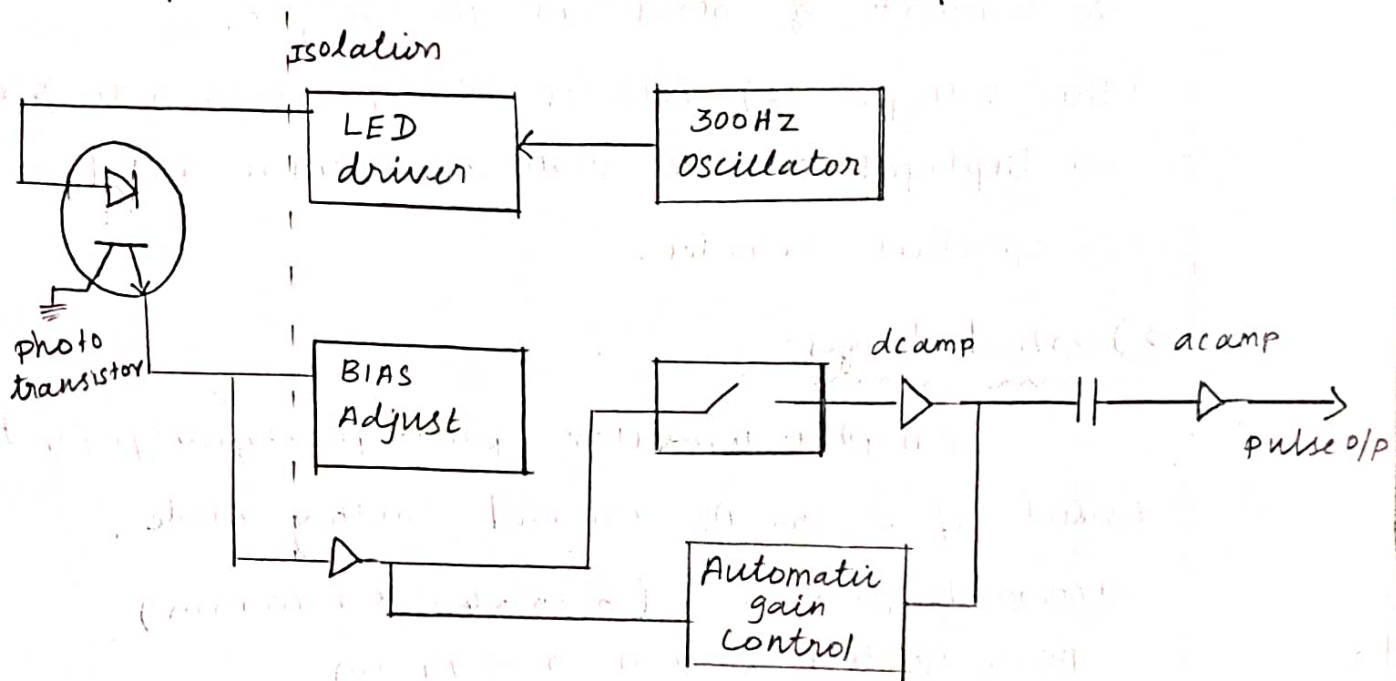 Isolation
LED
driver
300HZ
oscillator
photo
transistor
BIAS
Adjust
dcamp
acamp
pulse o/p
Automatic
gain
control